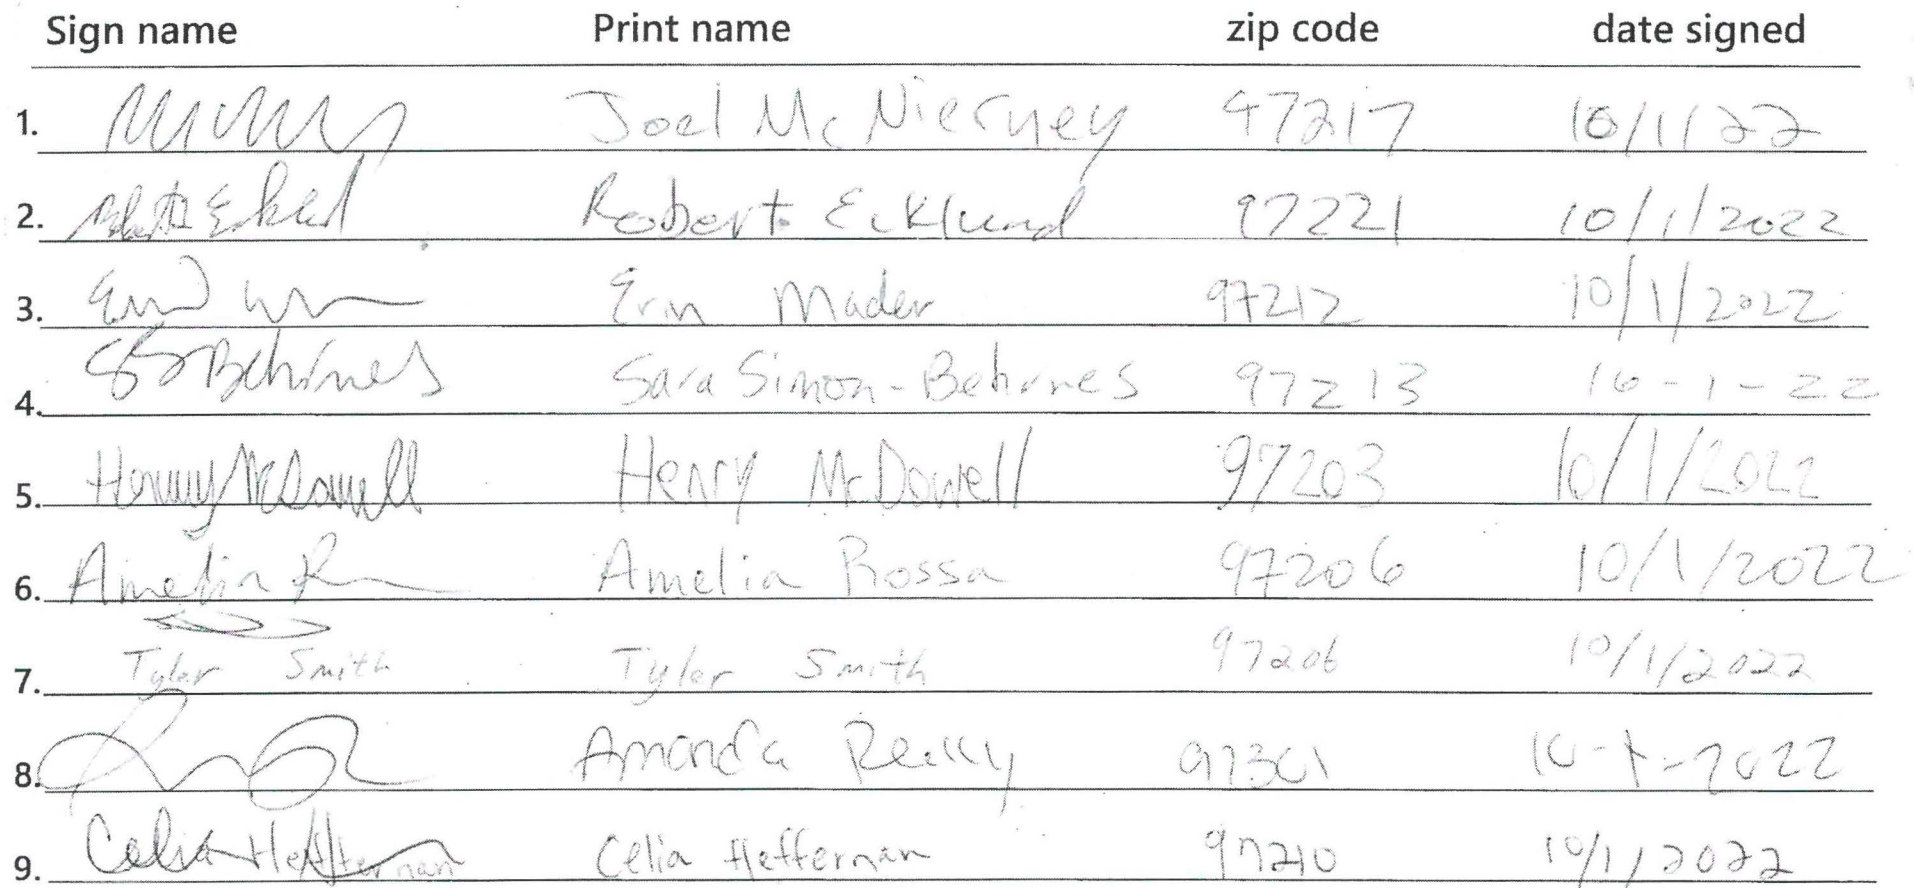 Sign name Print name zip code date signed
1. Joel McNierney 97217 10/1/22
2. Robert Ecklund Robert Ecklund 97221 10/1/2022
3. Erin Erin Mader 97212 10/1/2022
4. Behrnes Sara Simon-Behrnes 97213 10-1-22
5. Henry McDowell Henry McDowell 97203 10/1/2022
6. Amelia R Amelia Rossa 97206 10/1/2022
7. Tyler Smith Tyler Smith 97206 10/1/2022
8. Amanda Reilly 97301 10-1-2022
9. Celia Heffernan Celia Heffernan 97210 10/1/2022